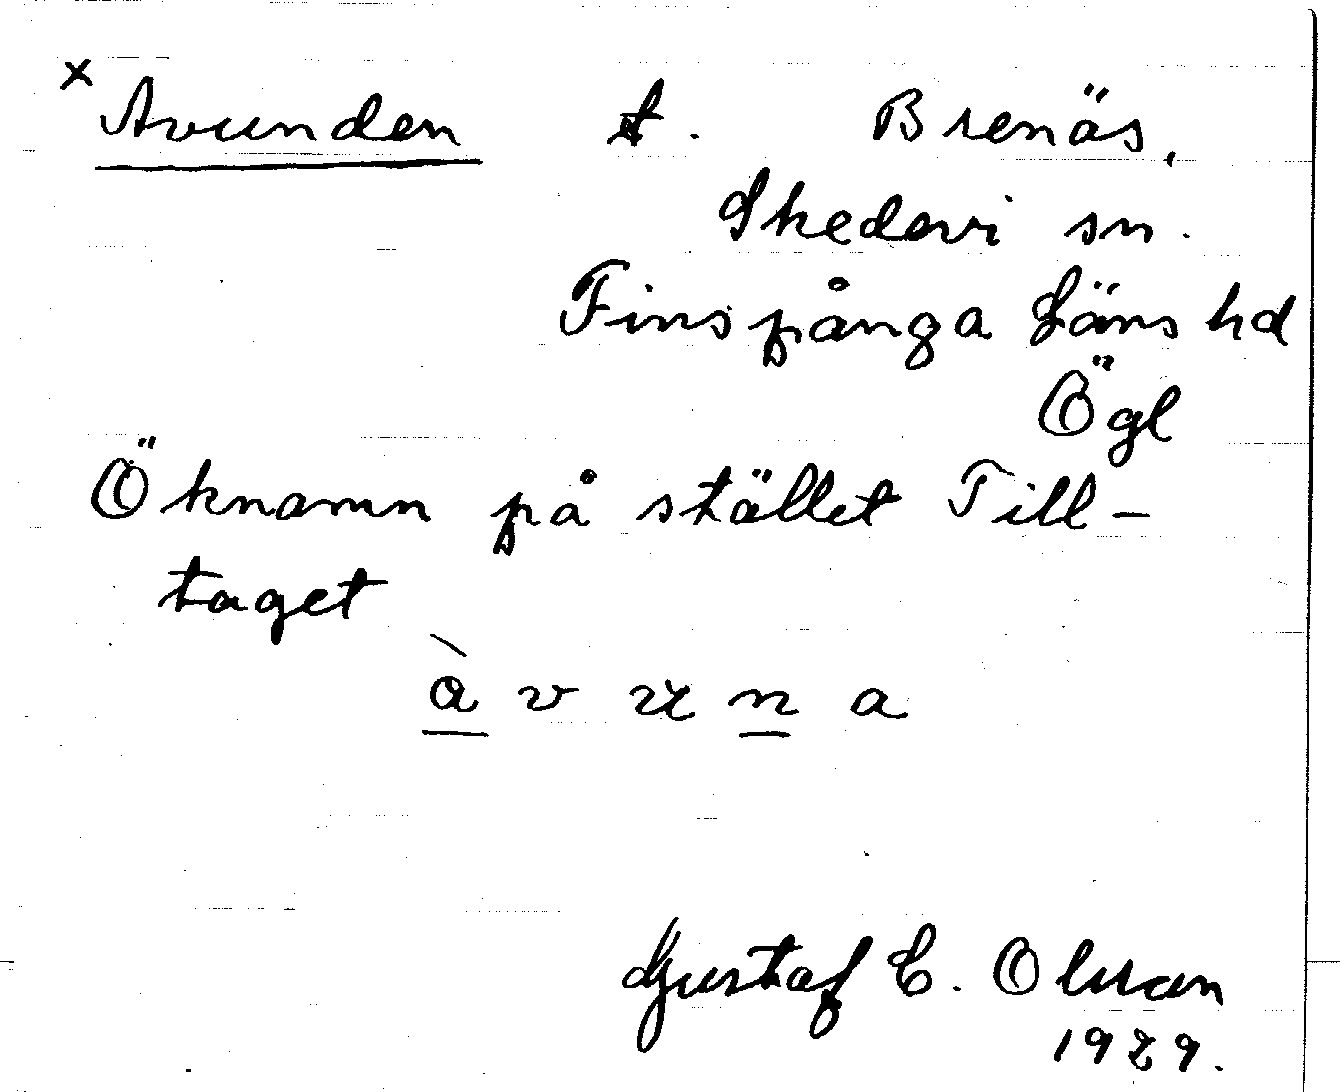 × Avunden t. Brenäs,
Skedevi sn.
Finspånga Läns hd
Ögl
Öknamn på stället Till-
taget
àvuna
Gustaf E. Olsson
1929.